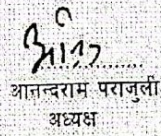 आनन्दराम पराजुली
अध्यक्ष